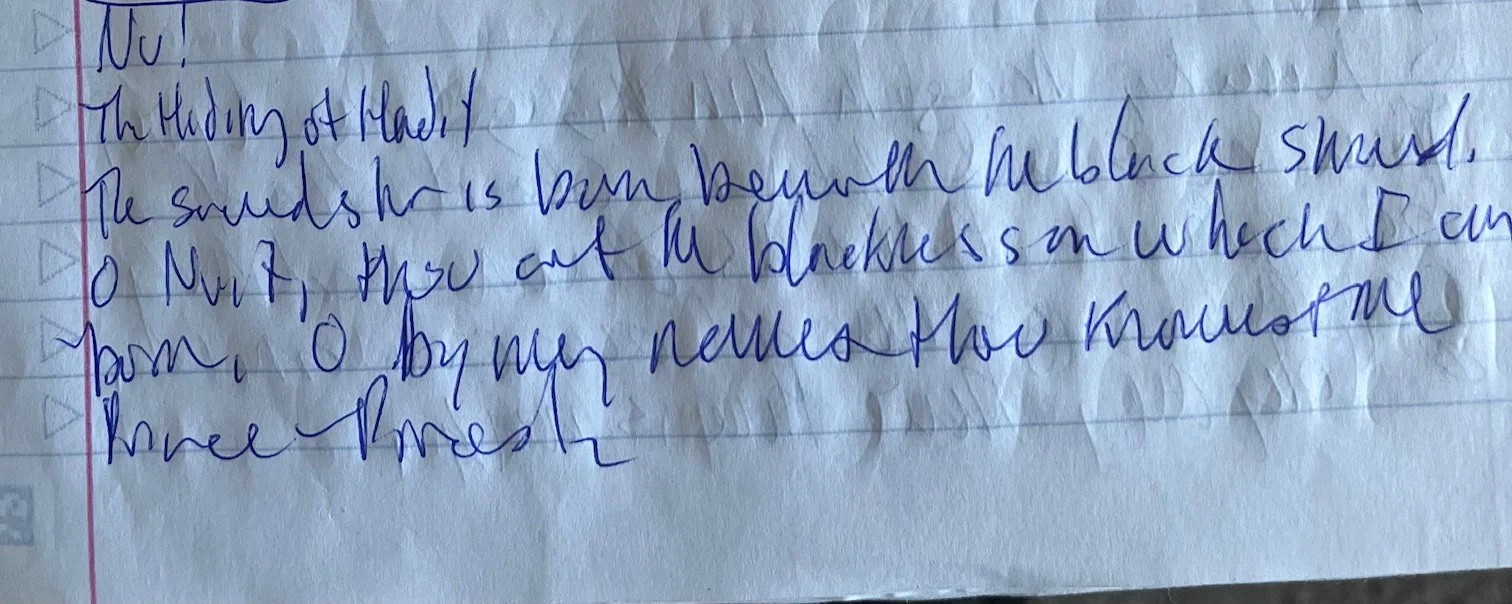 Nu!
The Hiding of Hadit
The sacred star is born beneath the black shroud.
O Nuit, thou art the blackness on which I am
born, O by my names thou knowest me
Prince-Priest